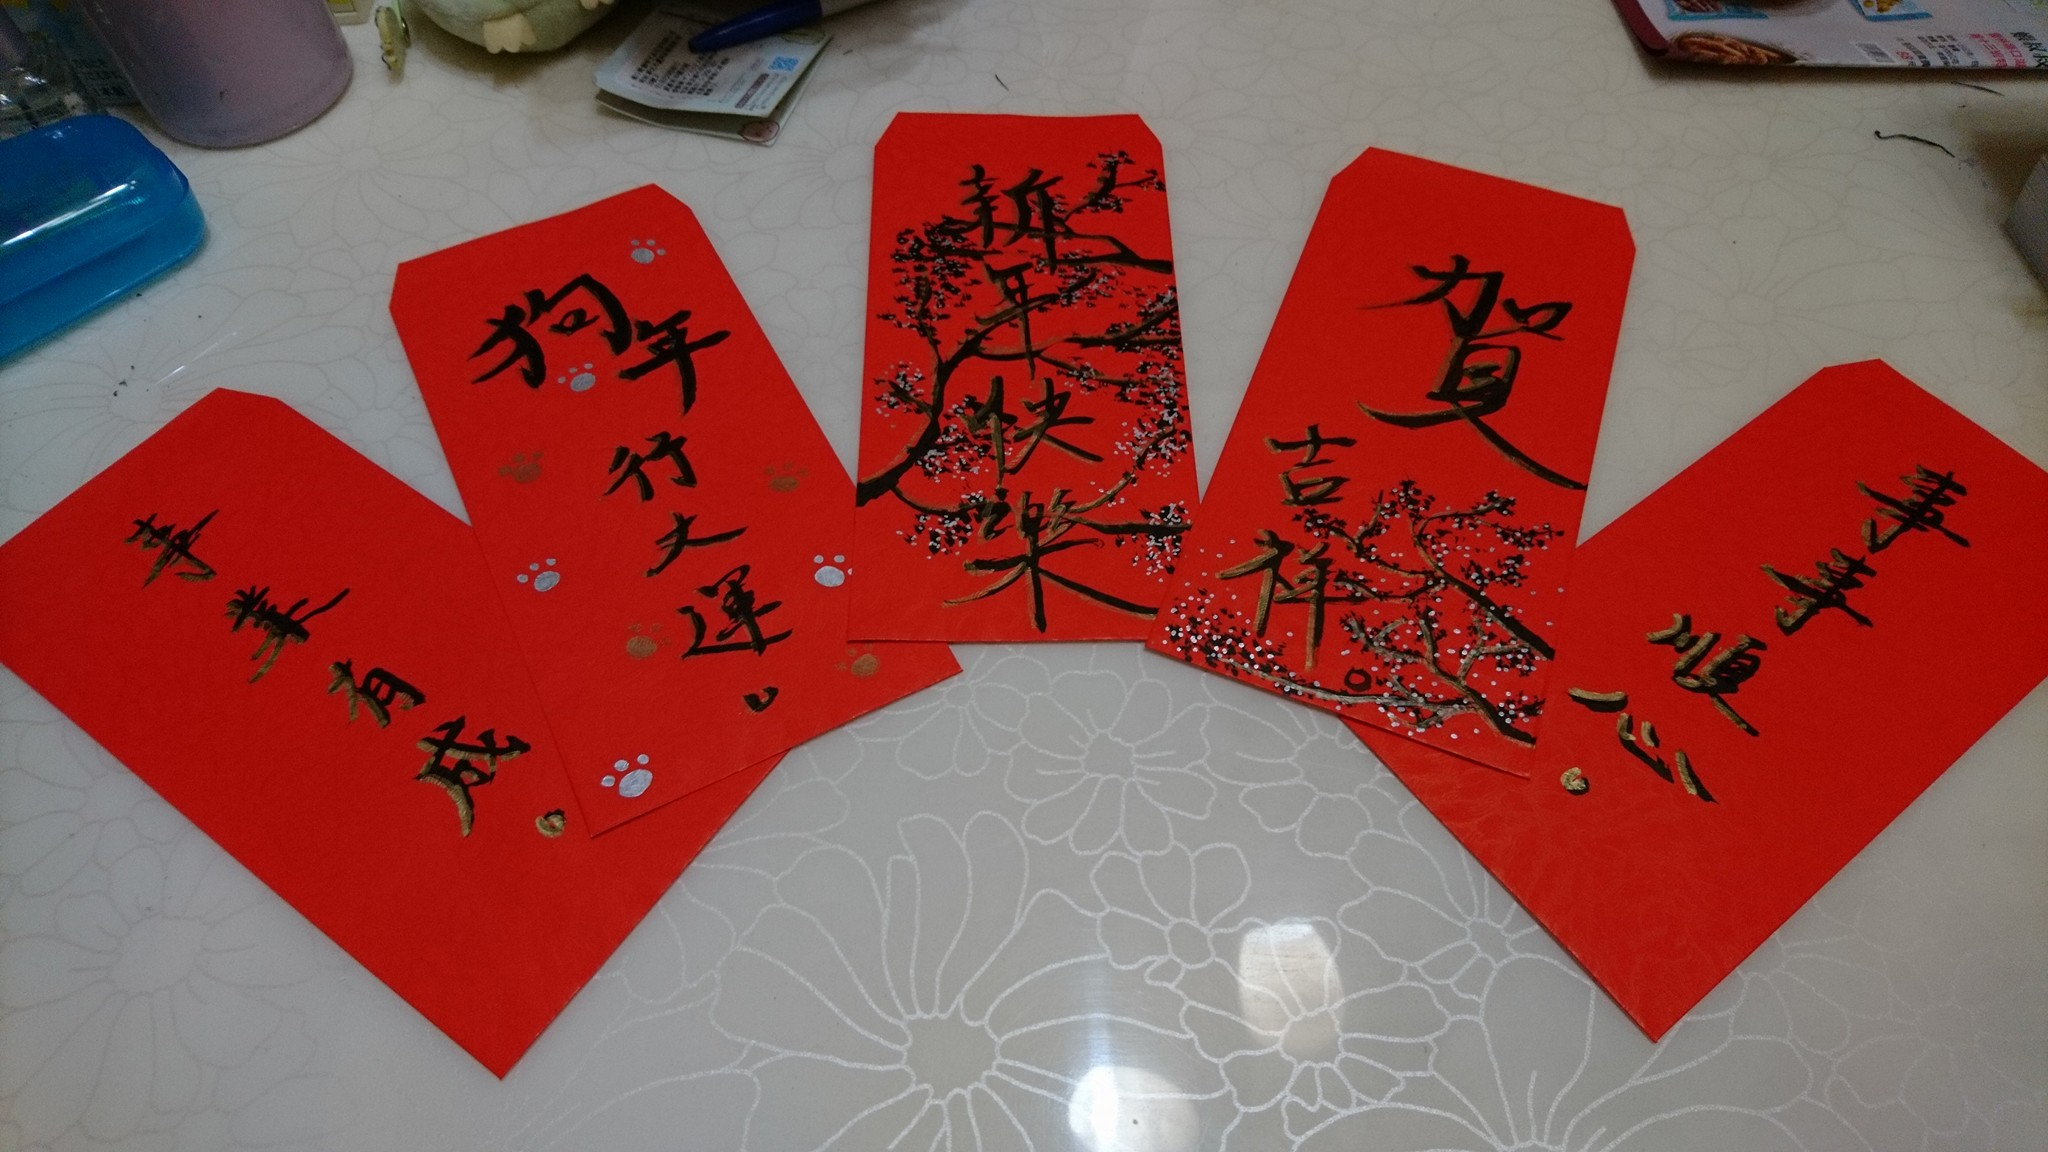 事業有成。
狗年行大運。
新年快樂
賀
吉祥。
事事順心。